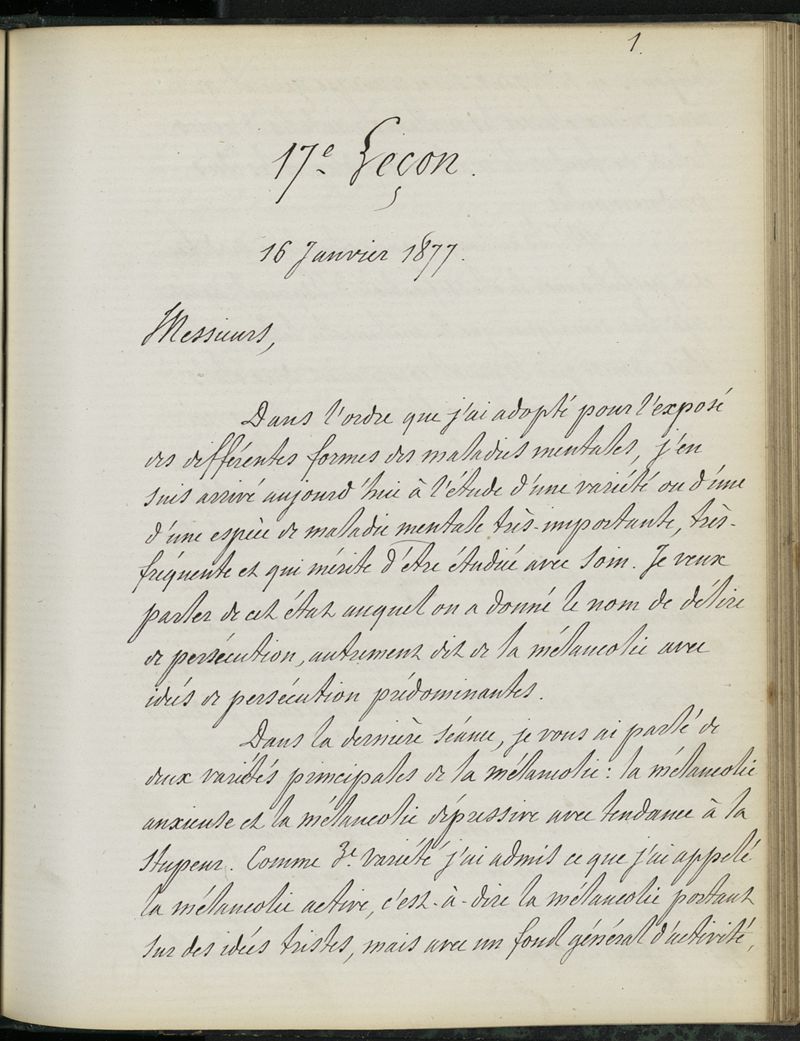 1.
17e Leçon.
16 Janvier 1877.
Messieurs,
Dans l'ordre que j'ai adopté pour l'exposé
des différentes formes des maladies mentales, j'en
suis arrivé aujourd'hui à l'étude d'une variété ou d'une
d'une espèce de maladie mentale très-importante, très-
fréquente et qui mérite d'être étudiée avec soin. Je veux
parler de cet état auquel on a donné le nom de délire
de persécution, autrement dit de la mélancolie avec
idées de persécution prédominantes.
Dans la dernière séance, je vous ai parlé de
deux variétés principales de la mélancolie: la mélancolie
anxieuse et la mélancolie dépressive avec tendance à la
stupeur. Comme 3e variété j'ai admis ce que j'ai appelé
la mélancolie active, c'est-à-dire la mélancolie portant
sur des idées tristes, mais avec un fond général d'activité,